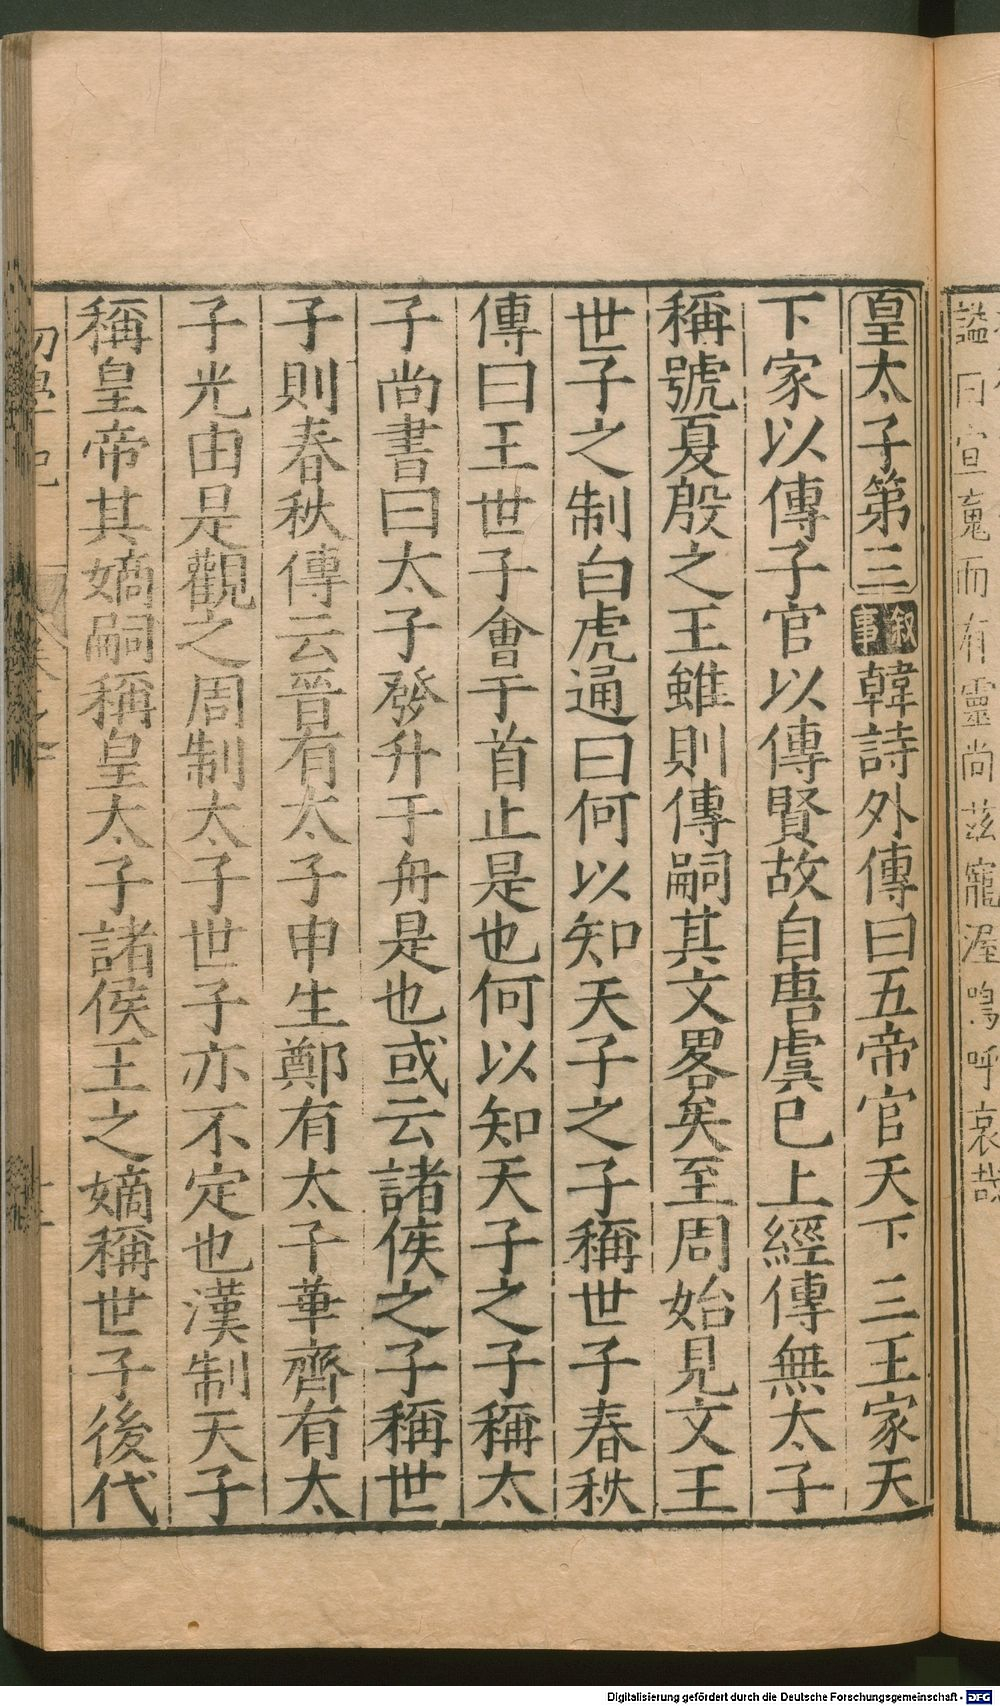 謚曰宣嵬而有靈尚茲寵渥嗚呼哀哉
皇太子第三叙事韓詩外傳曰五帝官天下三王家天
下家以傳子官以傳賢故自唐虞已上經傳無太子
稱號夏殷之王雖則傳嗣其文畧矣至周始見文王
世子之制白虎通曰何以知天子之子稱世子春秋
傳曰王世子會于首止是也何以知天子之子稱太
子尚書曰太子發升于舟是也或云諸侯之子稱世
子則春秋傳云晉有太子申生鄭有太子華齊有太
子光由是觀之周制太子世子亦不定也漢制天子
稱皇帝其嫡嗣稱皇太子諸侯王之嫡稱世子後代
初學記
Digitalisierung gefördert durch die Deutsche Forschungsgemeinschaft - DFG